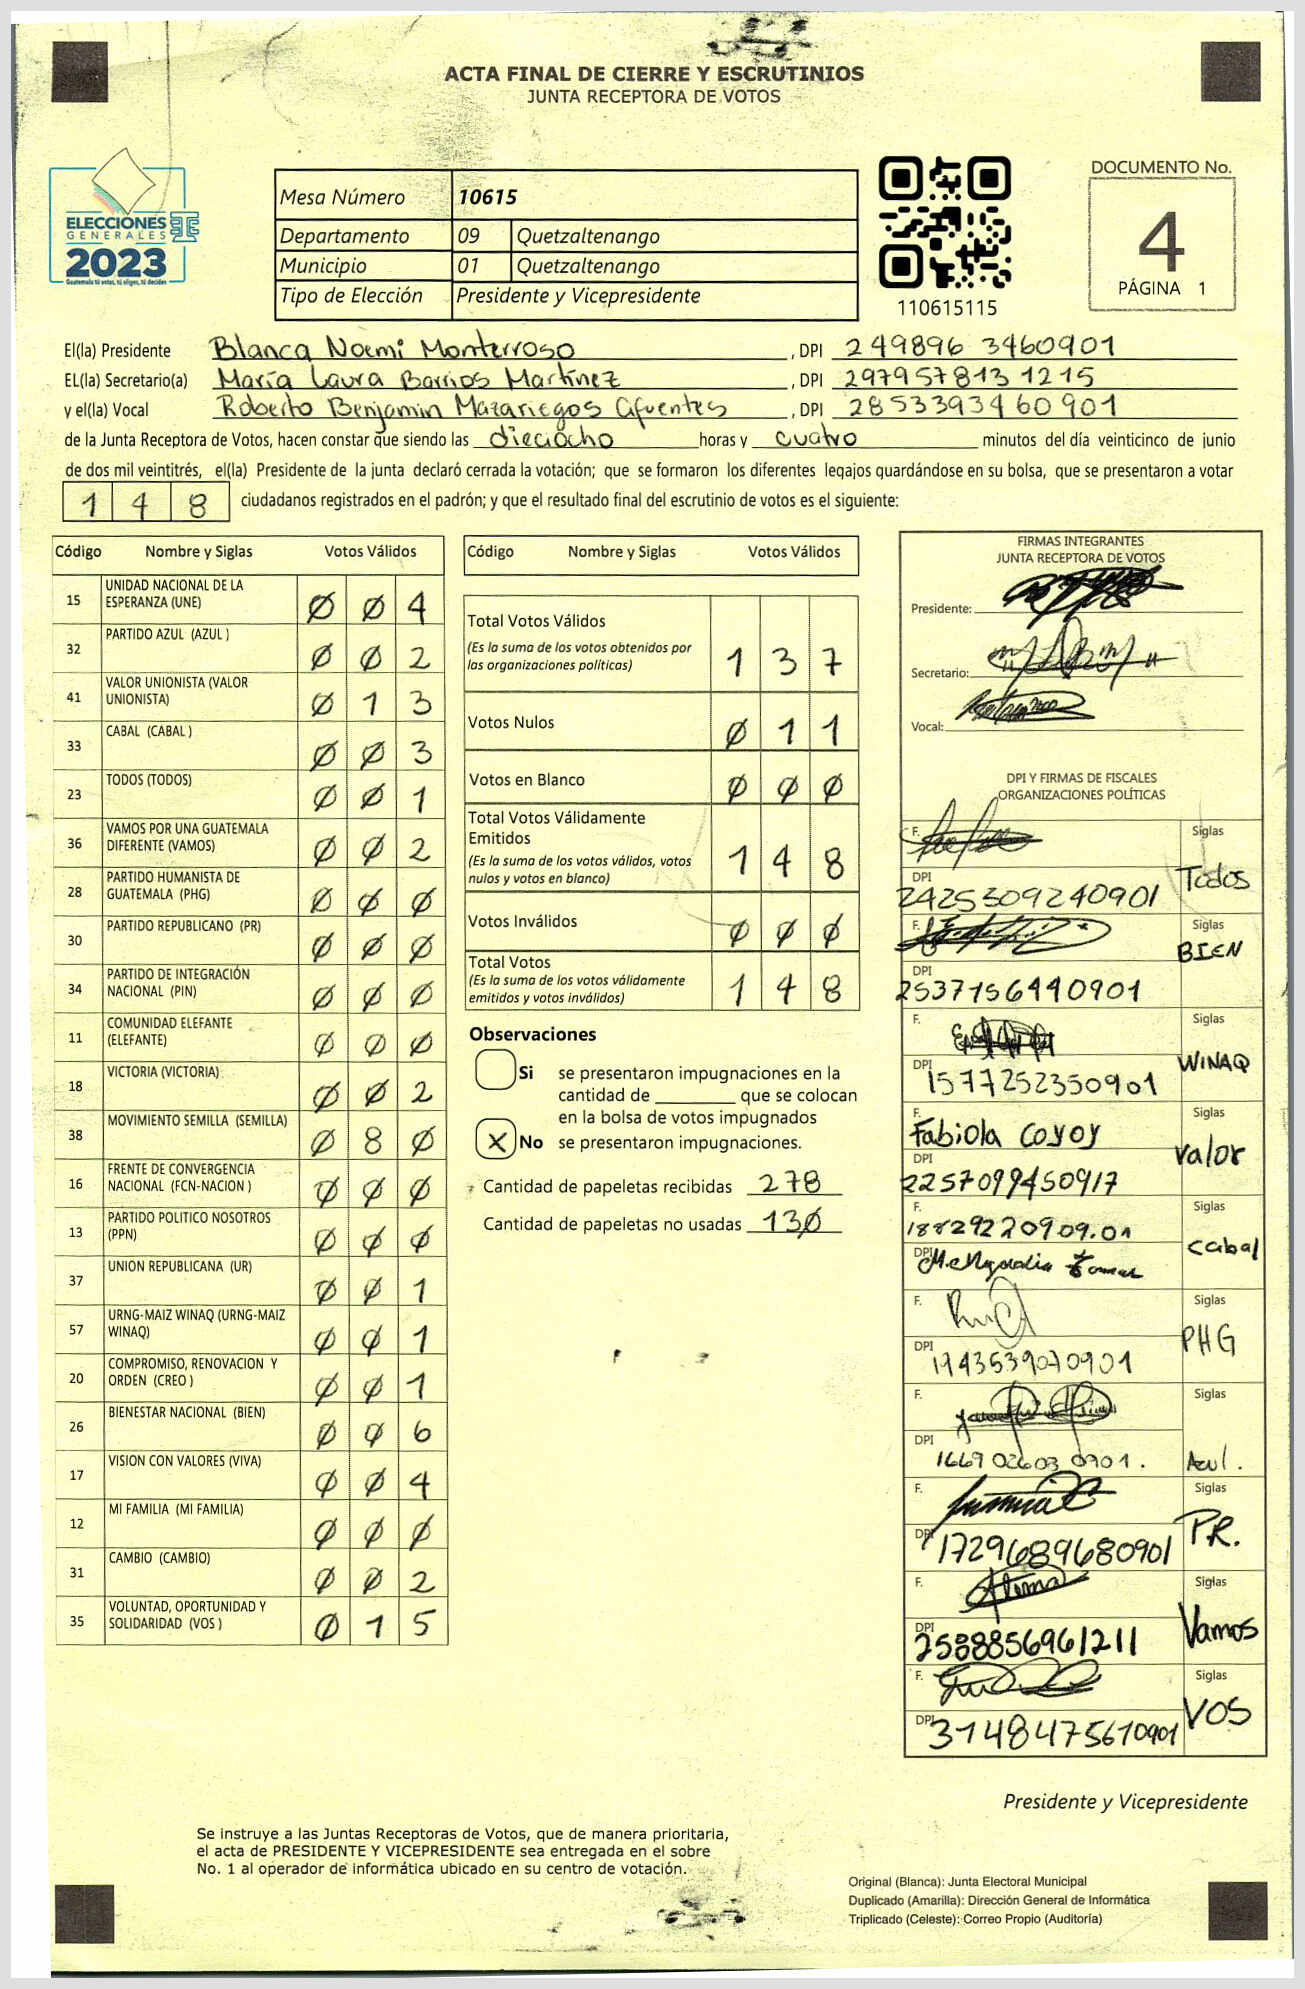 ACTA FINAL DE CIERRE Y ESCRUTINIOS
JUNTA RECEPTORA DE VOTOS
ELECCIONES
GENERALES
2023
Guatemala tú votas, tú eliges, tú decides
Mesa Número 10615
Departamento 09 Quetzaltenango
Municipio 01 Quetzaltenango
Tipo de Elección Presidente y Vicepresidente
110615115
DOCUMENTO No.
4
PÁGINA 1
El(la) Presidente Blanca Noemi Monterroso, DPI 249896 3460901
EL(la) Secretario(a) María Laura Barrios Martínez, DPI 297957813 1215
y el(la) Vocal Roberto Benjamin Mazariegos Cifuentes, DPI 2853393460901
de la Junta Receptora de Votos, hacen constar que siendo las dieciocho horas y cuatro minutos del día veinticinco de junio
de dos mil veintitrés, el(la) Presidente de la junta declaró cerrada la votación; que se formaron los diferentes legajos guardándose en su bolsa, que se presentaron a votar
1 4 8 ciudadanos registrados en el padrón; y que el resultado final del escrutinio de votos es el siguiente:
Código Nombre y Siglas Votos Válidos
15 UNIDAD NACIONAL DE LA ESPERANZA (UNE) 0 0 4
32 PARTIDO AZUL (AZUL ) 0 0 2
41 VALOR UNIONISTA (VALOR UNIONISTA) 0 1 3
33 CABAL (CABAL ) 0 0 3
23 TODOS (TODOS) 0 0 1
36 VAMOS POR UNA GUATEMALA DIFERENTE (VAMOS) 0 0 2
28 PARTIDO HUMANISTA DE GUATEMALA (PHG) 0 0 0
30 PARTIDO REPUBLICANO (PR) 0 0 0
34 PARTIDO DE INTEGRACIÓN NACIONAL (PIN) 0 0 0
11 COMUNIDAD ELEFANTE (ELEFANTE) 0 0 0
18 VICTORIA (VICTORIA) 0 0 2
38 MOVIMIENTO SEMILLA (SEMILLA) 0 8 0
16 FRENTE DE CONVERGENCIA NACIONAL (FCN-NACION ) 0 0 0
13 PARTIDO POLITICO NOSOTROS (PPN) 0 0 0
37 UNION REPUBLICANA (UR) 0 0 1
57 URNG-MAIZ WINAQ (URNG-MAIZ WINAQ) 0 0 1
20 COMPROMISO, RENOVACION Y ORDEN (CREO ) 0 0 1
26 BIENESTAR NACIONAL (BIEN) 0 0 6
17 VISION CON VALORES (VIVA) 0 0 4
12 MI FAMILIA (MI FAMILIA) 0 0 0
31 CAMBIO (CAMBIO) 0 0 2
35 VOLUNTAD, OPORTUNIDAD Y SOLIDARIDAD (VOS ) 0 1 5
Código Nombre y Siglas Votos Válidos
Total Votos Válidos
(Es la suma de los votos obtenidos por
las organizaciones políticas) 1 3 7
Votos Nulos 0 1 1
Votos en Blanco 0 0 0
Total Votos Válidamente
Emitidos
(Es la suma de los votos válidos, votos
nulos y votos en blanco) 1 4 8
Votos Inválidos 0 0 0
Total Votos
(Es la suma de los votos válidamente
emitidos y votos inválidos) 1 4 8
Observaciones
Si se presentaron impugnaciones en la
cantidad de ________ que se colocan
en la bolsa de votos impugnados
X No se presentaron impugnaciones.
Cantidad de papeletas recibidas 278
Cantidad de papeletas no usadas 130
FIRMAS INTEGRANTES
JUNTA RECEPTORA DE VOTOS
Presidente:
Secretario:
Vocal:
DPI Y FIRMAS DE FISCALES
ORGANIZACIONES POLÍTICAS
F. Siglas
DPI Todos
2425309240901
F. Siglas
BIEN
DPI
2537156440901
F. Siglas
DPI WINAQ
1577252350901
F. Siglas
Fabiola Coyoy
DPI Valor
2257099450917
F. Siglas
18829220909.01
DPI Cabal
F. Siglas
PHG
DPI
1943539070901
F. Siglas
DPI
1669026030901. Azul.
F. Siglas
PR.
DPI
1729689680901
F. Siglas
Vamos
DPI
2588856961211
F. Siglas
VOS
DPI
3148475610901
Presidente y Vicepresidente
Se instruye a las Juntas Receptoras de Votos, que de manera prioritaria,
el acta de PRESIDENTE Y VICEPRESIDENTE sea entregada en el sobre
No. 1 al operador de informática ubicado en su centro de votación.
Original (Blanca): Junta Electoral Municipal
Duplicado (Amarilla): Dirección General de Informática
Triplicado (Celeste): Correo Propio (Auditoría)